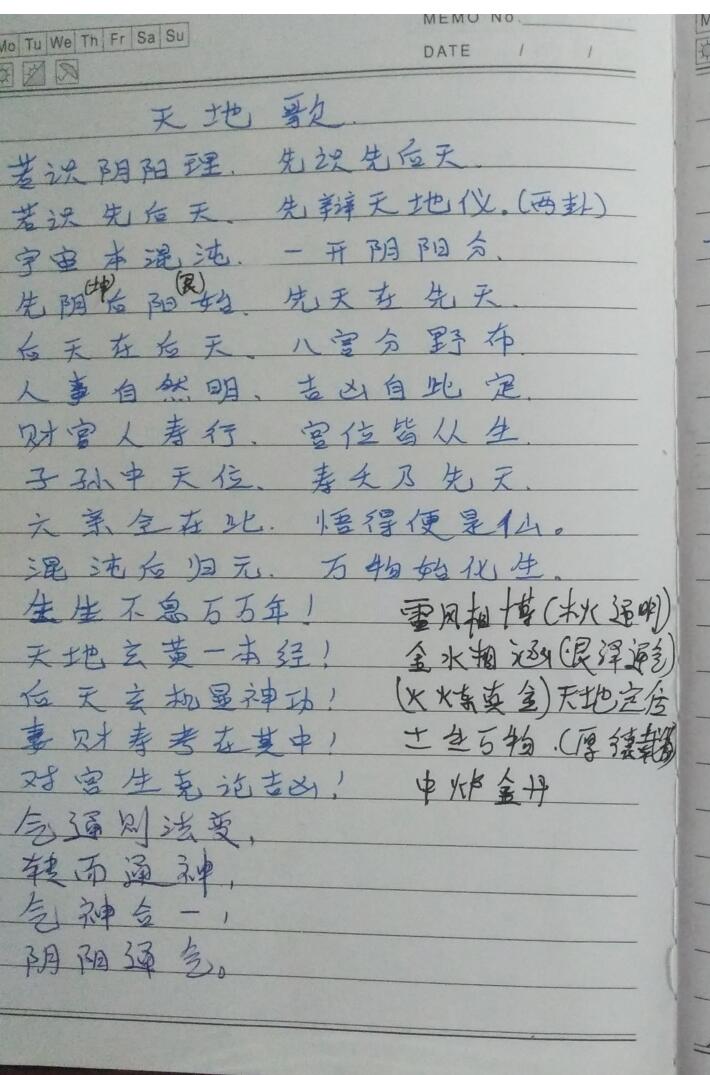 MEMO No.
Mo Tu We Th Fr Sa Su
DATE / /
天地歌.
若识阴阳理. 先识先后天.
若识先后天. 先辩天地仪.(两卦)
宇宙本混沌. 一开阴阳分.
先阴(坤)后阳(艮)始. 先天在先天.
后天在后天. 八宫分野布.
人事自然明. 吉凶自此定.
财官人寿行. 宫位皆从生.
子孙中天位. 寿夭乃先天.
六亲全在此. 悟得便是仙。
混沌后归元. 万物始化生.
生生不息万万年! 雷风相博(木火通明)
天地玄黄一本经! 金水相涵(艮泽通气)
后天玄机显神功! (火炼真金)天地定位
妻财寿考在其中! 土生万物.(厚德载物)
对宫生克论吉凶! 中炉金丹
气通则法变,
转而通神,
气神合一,
阴阳通气。